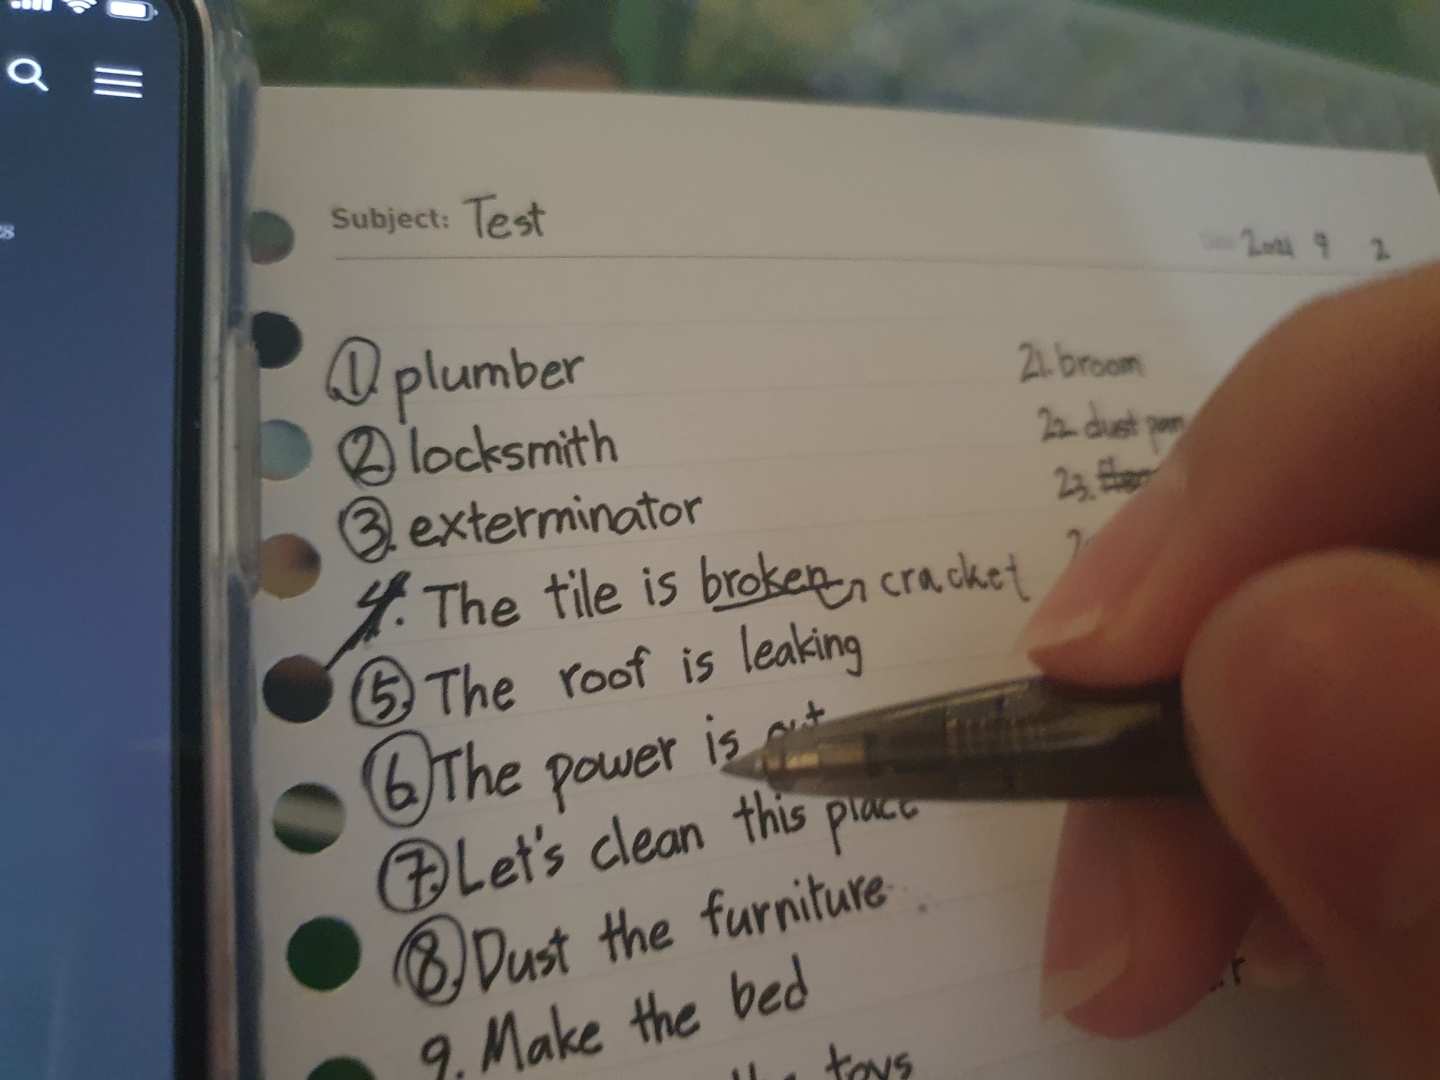 Subject: Test
1. plumber
2. locksmith
3. exterminator
4. The tile is broken cracket
5. The roof is leaking
6. The power is out
7. Let's clean this place
8. Dust the furniture
9. Make the bed
the toys
21. broom
22. dust pan
23.